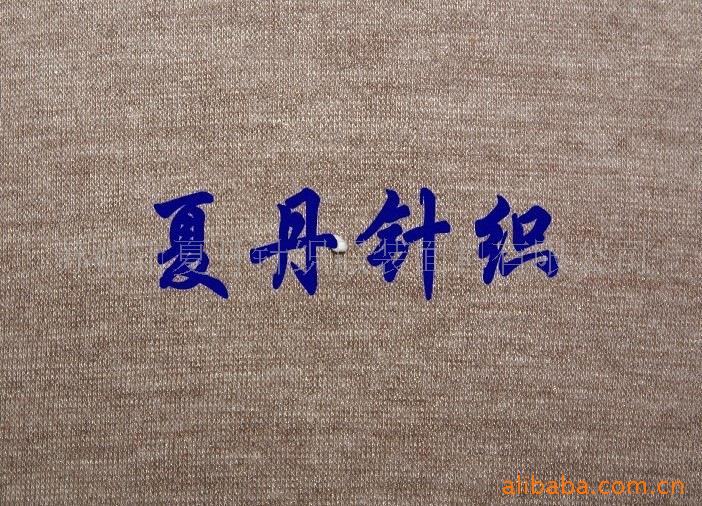 夏丹针织
alibaba.com.cn